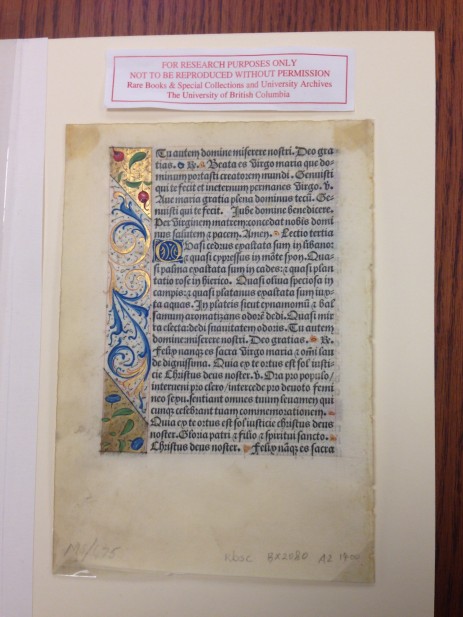 FOR RESEARCH PURPOSES ONLY
NOT TO BE REPRODUCED WITHOUT PERMISSION
Rare Books & Special Collections and University Archives
The University of British Columbia
Tu autem domine miserere nostri. Deo gra
tias. R. Beata es virgo maria que do-
minum portasti creatorem mundi. Genuisti
qui te fecit et ineternum permanes virgo. v.
Aue maria gratia plena dominus tecū. Ge-
nuisti qui te fecit. Iube domine benedicere.
Per virginem matrem: concedat nobis domi
nus salutem ⁊ pacem. Amen. Lectio tertia
Quasi cedrus exaltata sum in libano:
⁊ quasi cypressus in mōte syon. Qua-
si palma exaltata sum in cades: ⁊ quasi plan
tatio rose in hierico. Quasi oliua speciosa in
campis: ⁊ quasi platanus exaltata sum iux-
ta aquas. In plateis sicut cynamomū ⁊ bal
samum aromatizans odorē dedi. Quasi mir
ra electa: dedi suauitatem odoris. Tu autem
domine miserere nostri. Deo gratias. R.
Felix nanq; es sacra virgo maria ⁊ omni lau
de dignissima. Quia ex te ortus est sol iusti-
cie Christus deus noster. v. Ora pro populo/
interueni pro clero/ intercede pro deuoto femi
neo sexu. sentiant omnes tuum leuamen qui
cunq; celebrant tuam commemorationem.
Quia ex te ortus est sol iusticie christus deus
noster. Gloria patri ⁊ filio ⁊ spiritui sancto.
Christus deus noster. Felix nāq; es sacra
BX2080 A2 1500